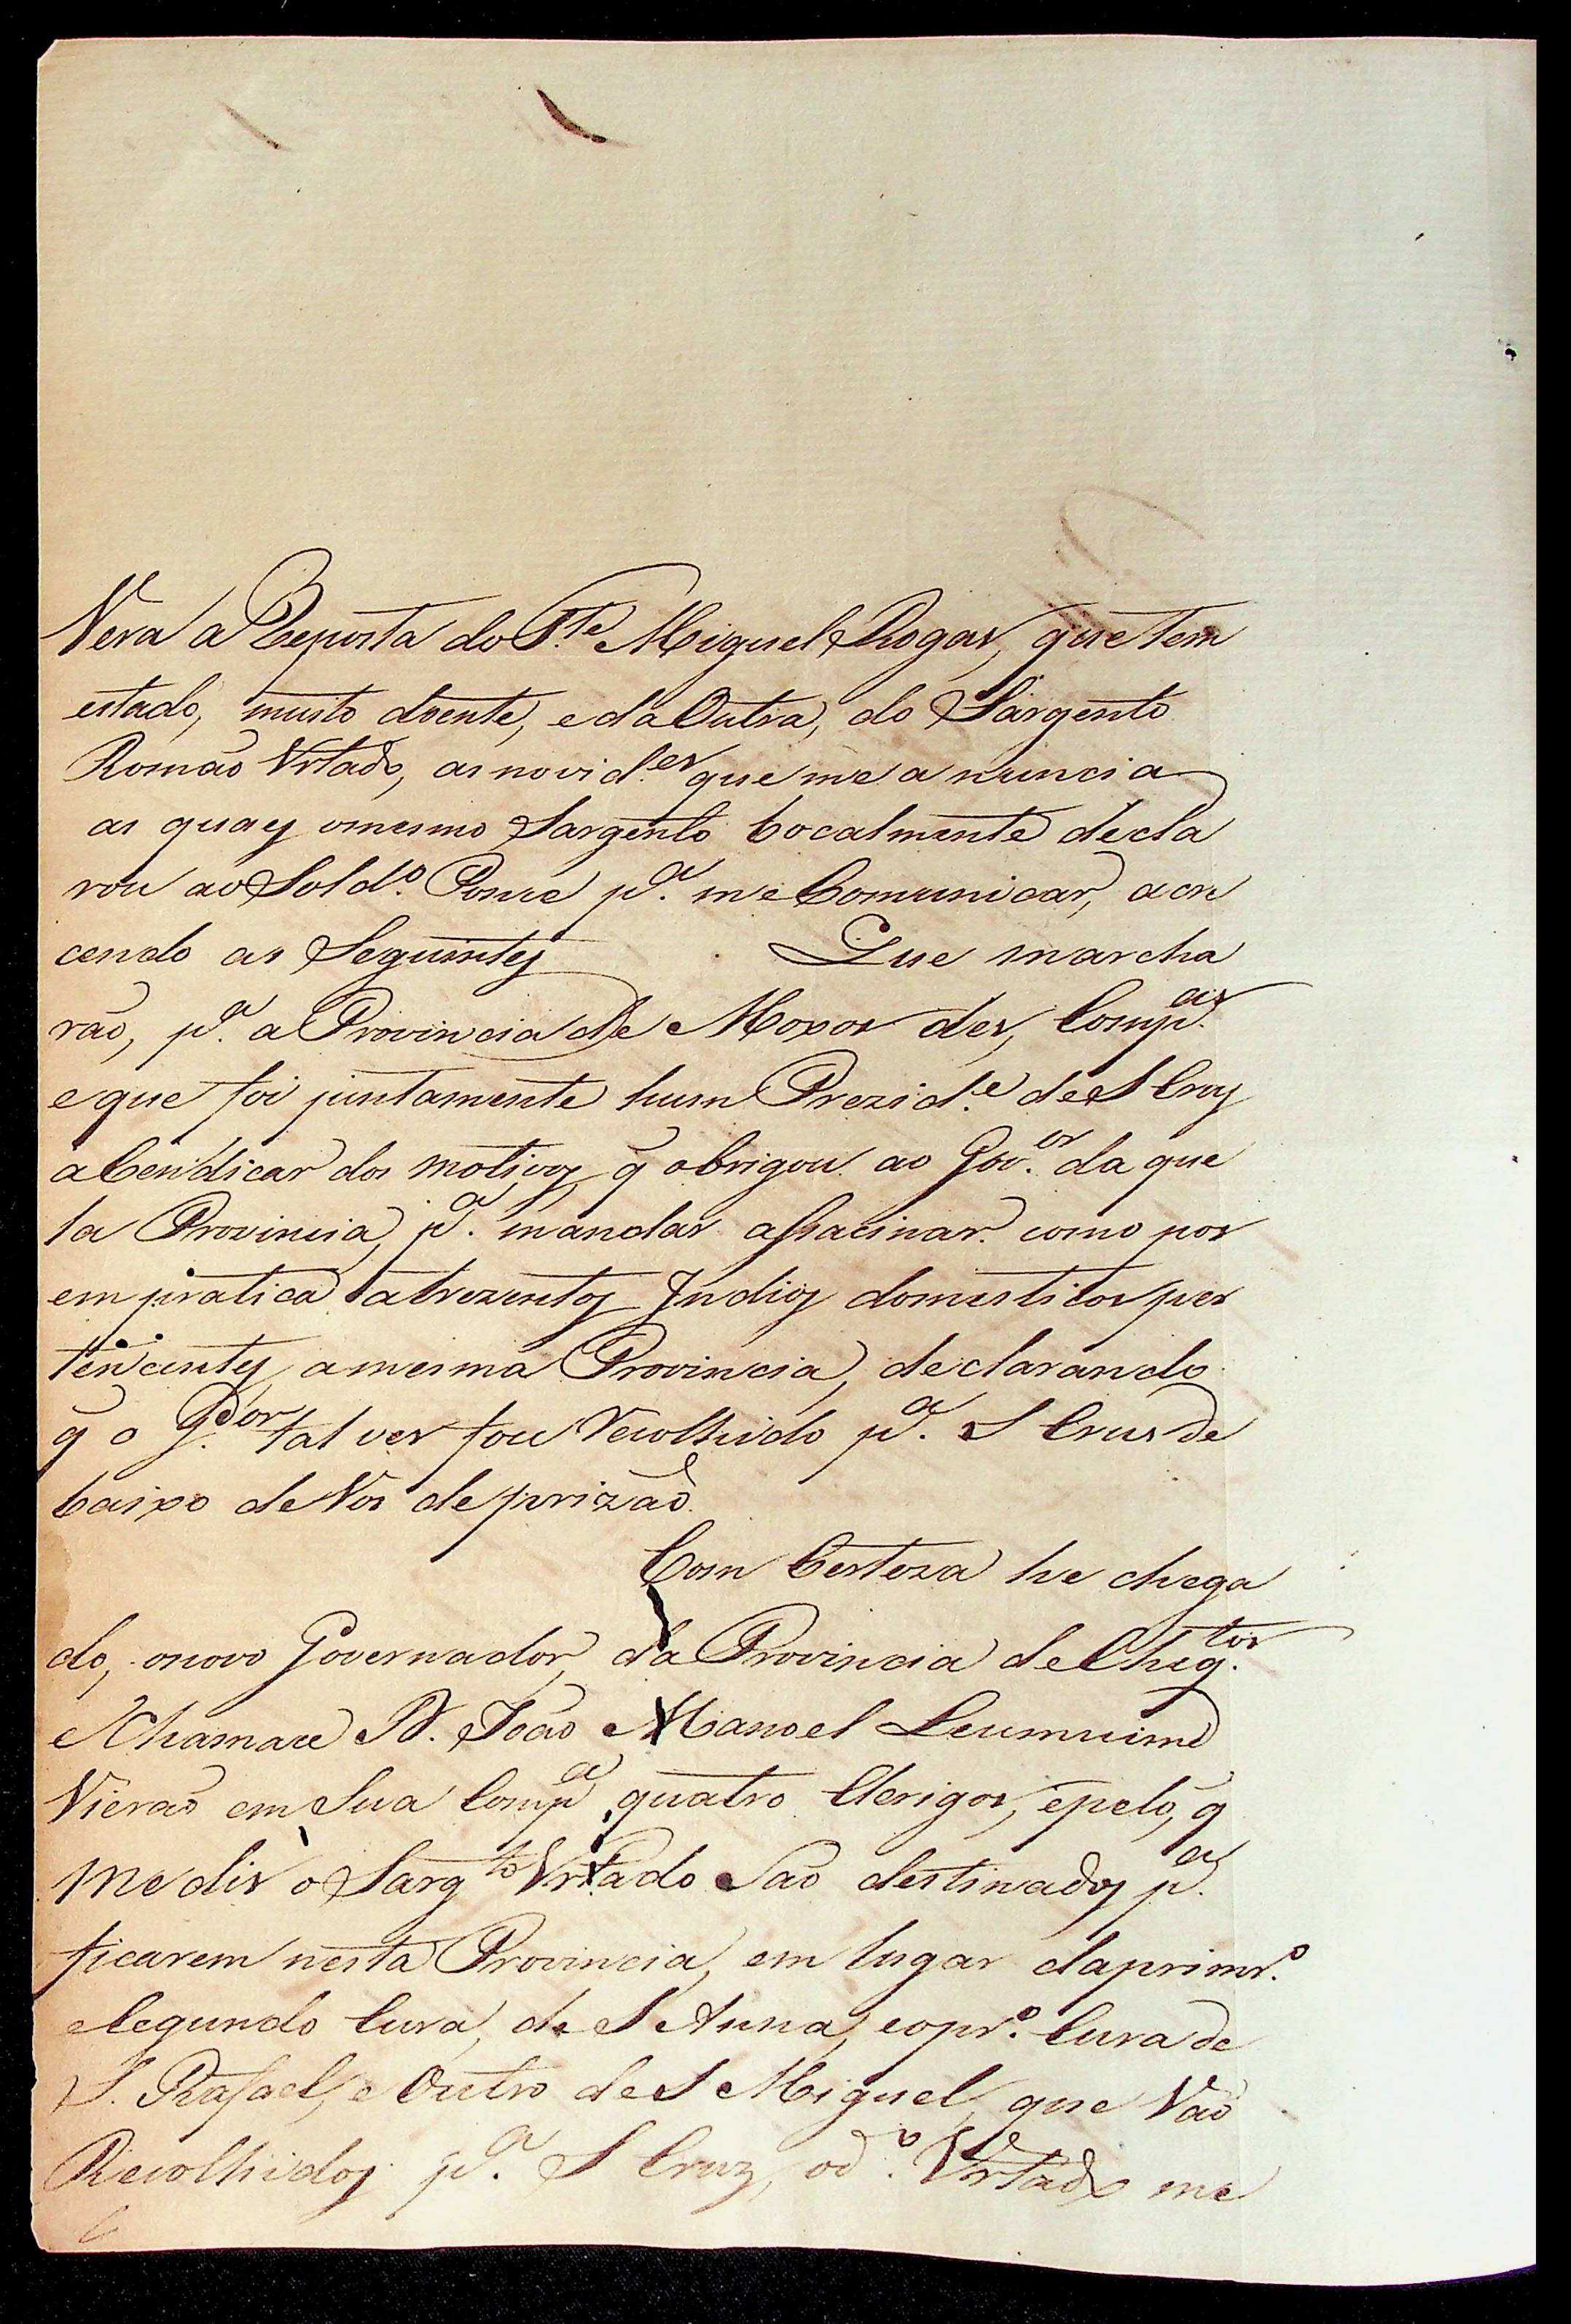 Vera a Reposta do T.te Miguel Rogar, que tem
estado, muito doente, e da Outra, do Sargento
Romão Vrtado, as novid.es que me a nuncia
as quaes omesmo Sargento bocalmente decla
rou ao Sold.o Ponce p.a me Comunicar, acre
cendo as Seguintes Que marcha
rão, p.a a Provincia de Moxos des, Comp.as
e que foi juntamente hum Prezid.e de S Cruz
a bendicar dos motivos q̃ obrigou ao Gov.or da que
la Provincia, p.a mandar assacinar como por
em pratica atrezentos Indios domesticos per
tencentes, amesma Provincia, declarando
q̃ o G.dor tal ves fou Recolhido p.a S Crus de
baixo de Vos de prizaõ.
Com Certeza he chega
do, onovo Governador, da Provincia de Chiq.tos
e Chamace D. João Manoel
Vieraõ em Sua Comp.a quatro Clerigos, epelo, q̃
me dis o Sarg.to Vrtado Saõ destinados p.a
ficarem nesta Provincia, em lugar daprimr.o
eSegundo Cura, de S Anna, eopr.o Cura de
S. Rafael, e Outro de S Miguel, que Vaõ
Recolhidos p.a S Cruz, od.o Vrtado me